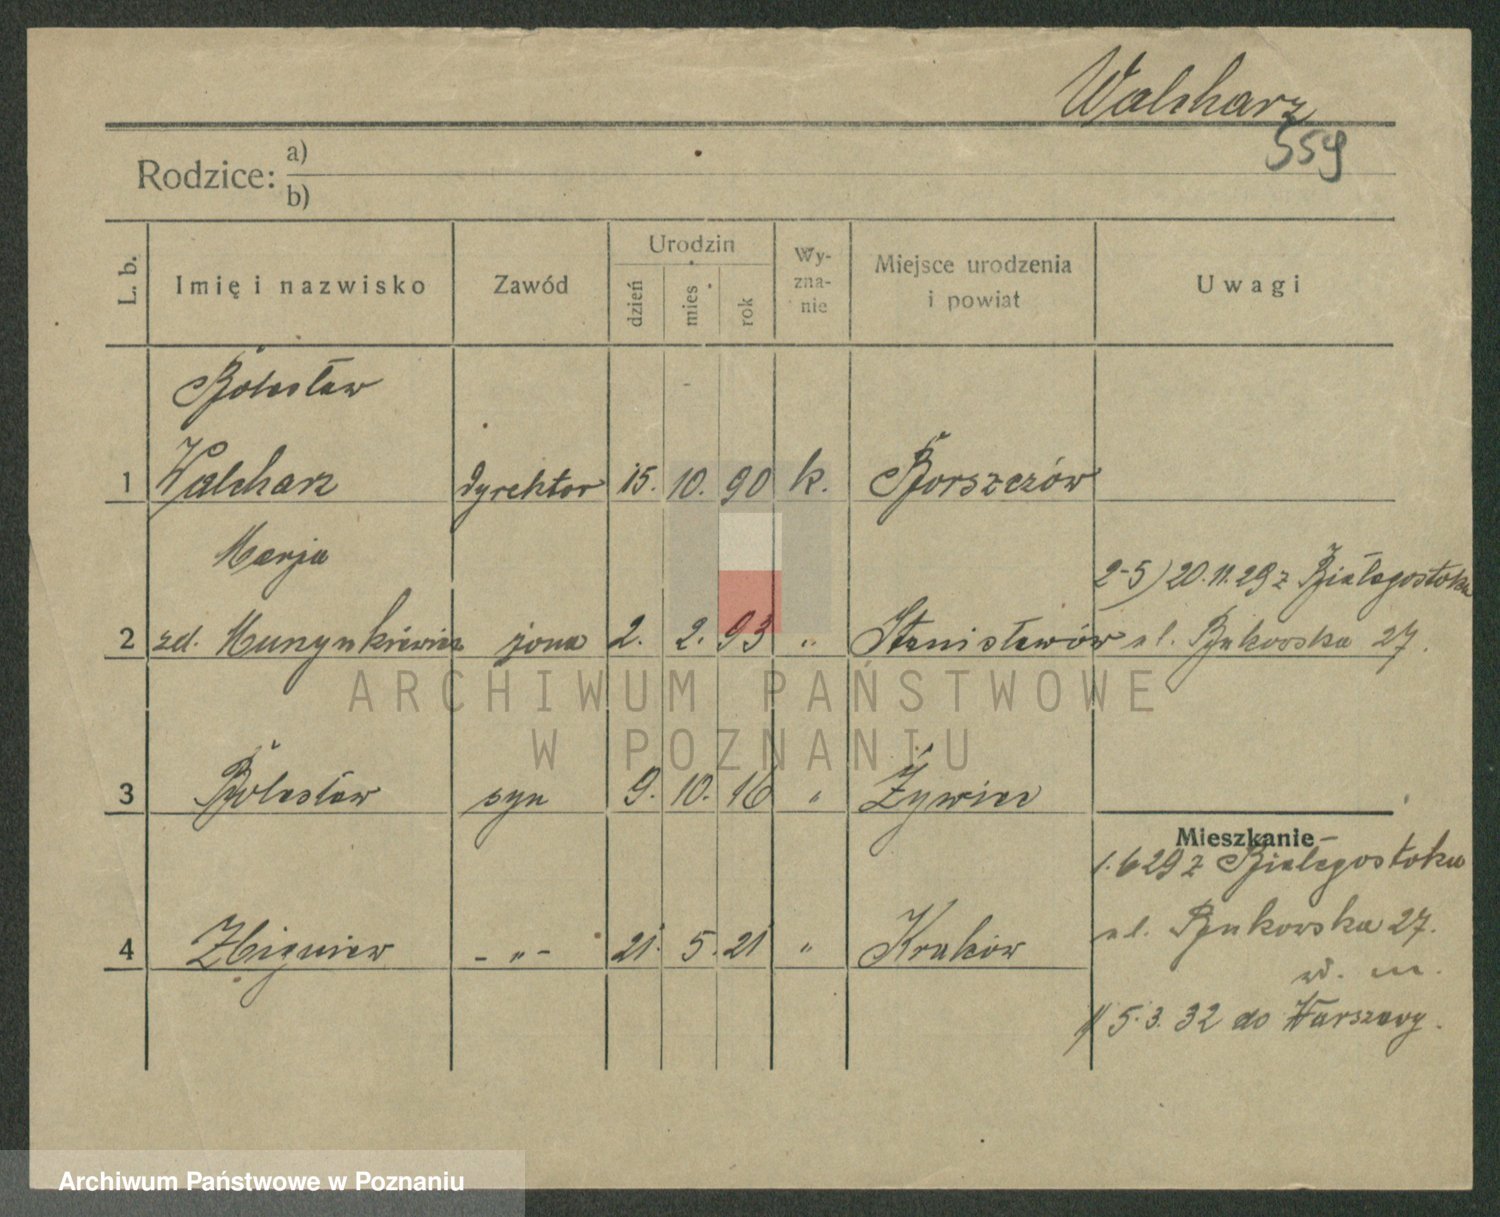 Walcharz
559
Rodzice: a)
b)
L. b. Imię i nazwisko Zawód Urodzin dzień mies rok Wy-zna-nie Miejsce urodzenia i powiat Uwagi
Bolesław
1 Walcharz dyrektor 15. 10. 90 k. Borszczów
Marja
2-5) 20.11.29 z Białegostoku
2 zd. żona 2. 2. 93 " Stanisławów ul. Bukowska 27.
ARCHIWUM PAŃSTWOWE
W POZNANIU
3 Bolesław syn 9. 10. 16 " Żywiec
Mieszkanie
1.6 29 z Białegostoku
ul. Bukowska 27.
4 Zbigniew - " - 21. 5. 21 " Kraków
w. m.
1/ 5. 3. 32 do Warszawy.
Archiwum Państwowe w Poznaniu